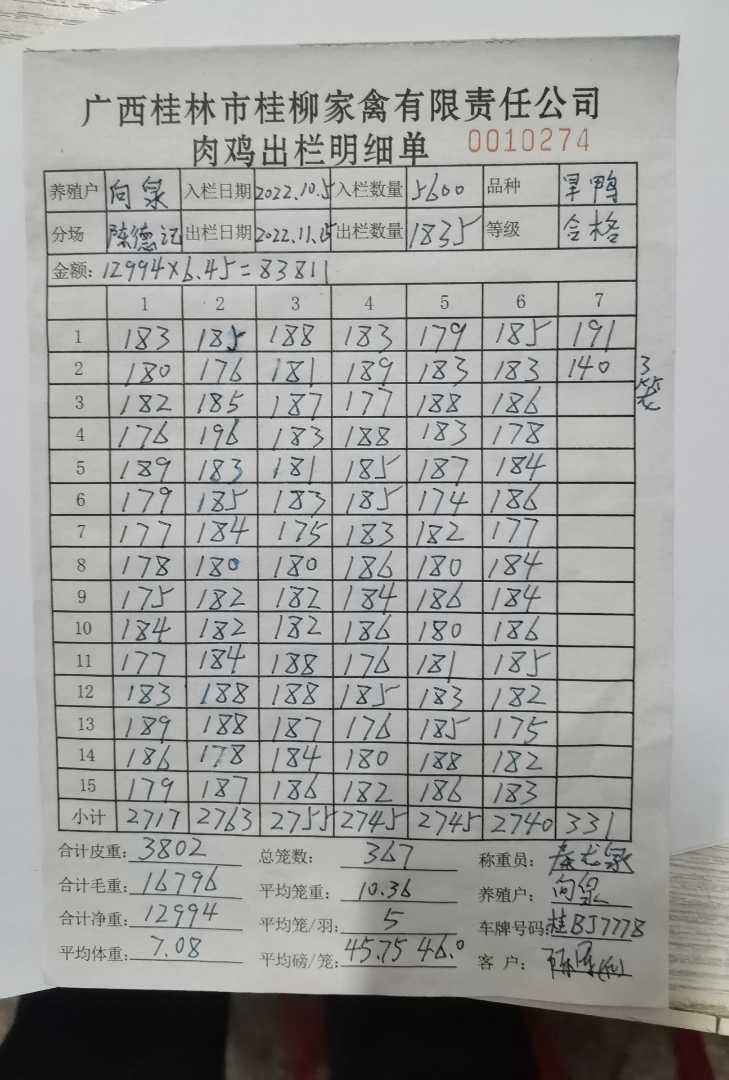 广西桂林市桂柳家禽有限责任公司
肉鸡出栏明细单 0010274
养殖户 向泉 入栏日期 2022.10.5 入栏数量 5600 品种 旱鸭
分场 陈德记 出栏日期 2022.11.25 出栏数量 1835 等级 合格
金额: 12994×6.45=83811
1 2 3 4 5 6 7
1 183 185 188 183 179 185 191
2 180 176 181 189 183 183 140 3笼
3 182 185 187 177 188 186
4 176 196 183 188 183 178
5 189 183 181 185 187 184
6 179 185 183 185 174 186
7 177 184 175 183 182 177
8 178 180 180 186 180 184
9 175 182 182 184 186 184
10 184 182 182 186 180 186
11 177 184 188 176 181 185
12 183 188 188 185 183 182
13 189 188 187 176 185 175
14 186 178 184 180 188 182
15 179 187 186 182 186 183
小计 2717 2763 2755 2745 2745 2740 331
合计皮重: 3802 总笼数: 367 称重员: 泉
合计毛重: 16796 平均笼重: 10.36 养殖户: 向泉
合计净重: 12994 平均笼/羽: 5 车牌号码: 桂BJ7778
平均体重: 7.08 平均磅/笼: 45.75 46.0 客户: